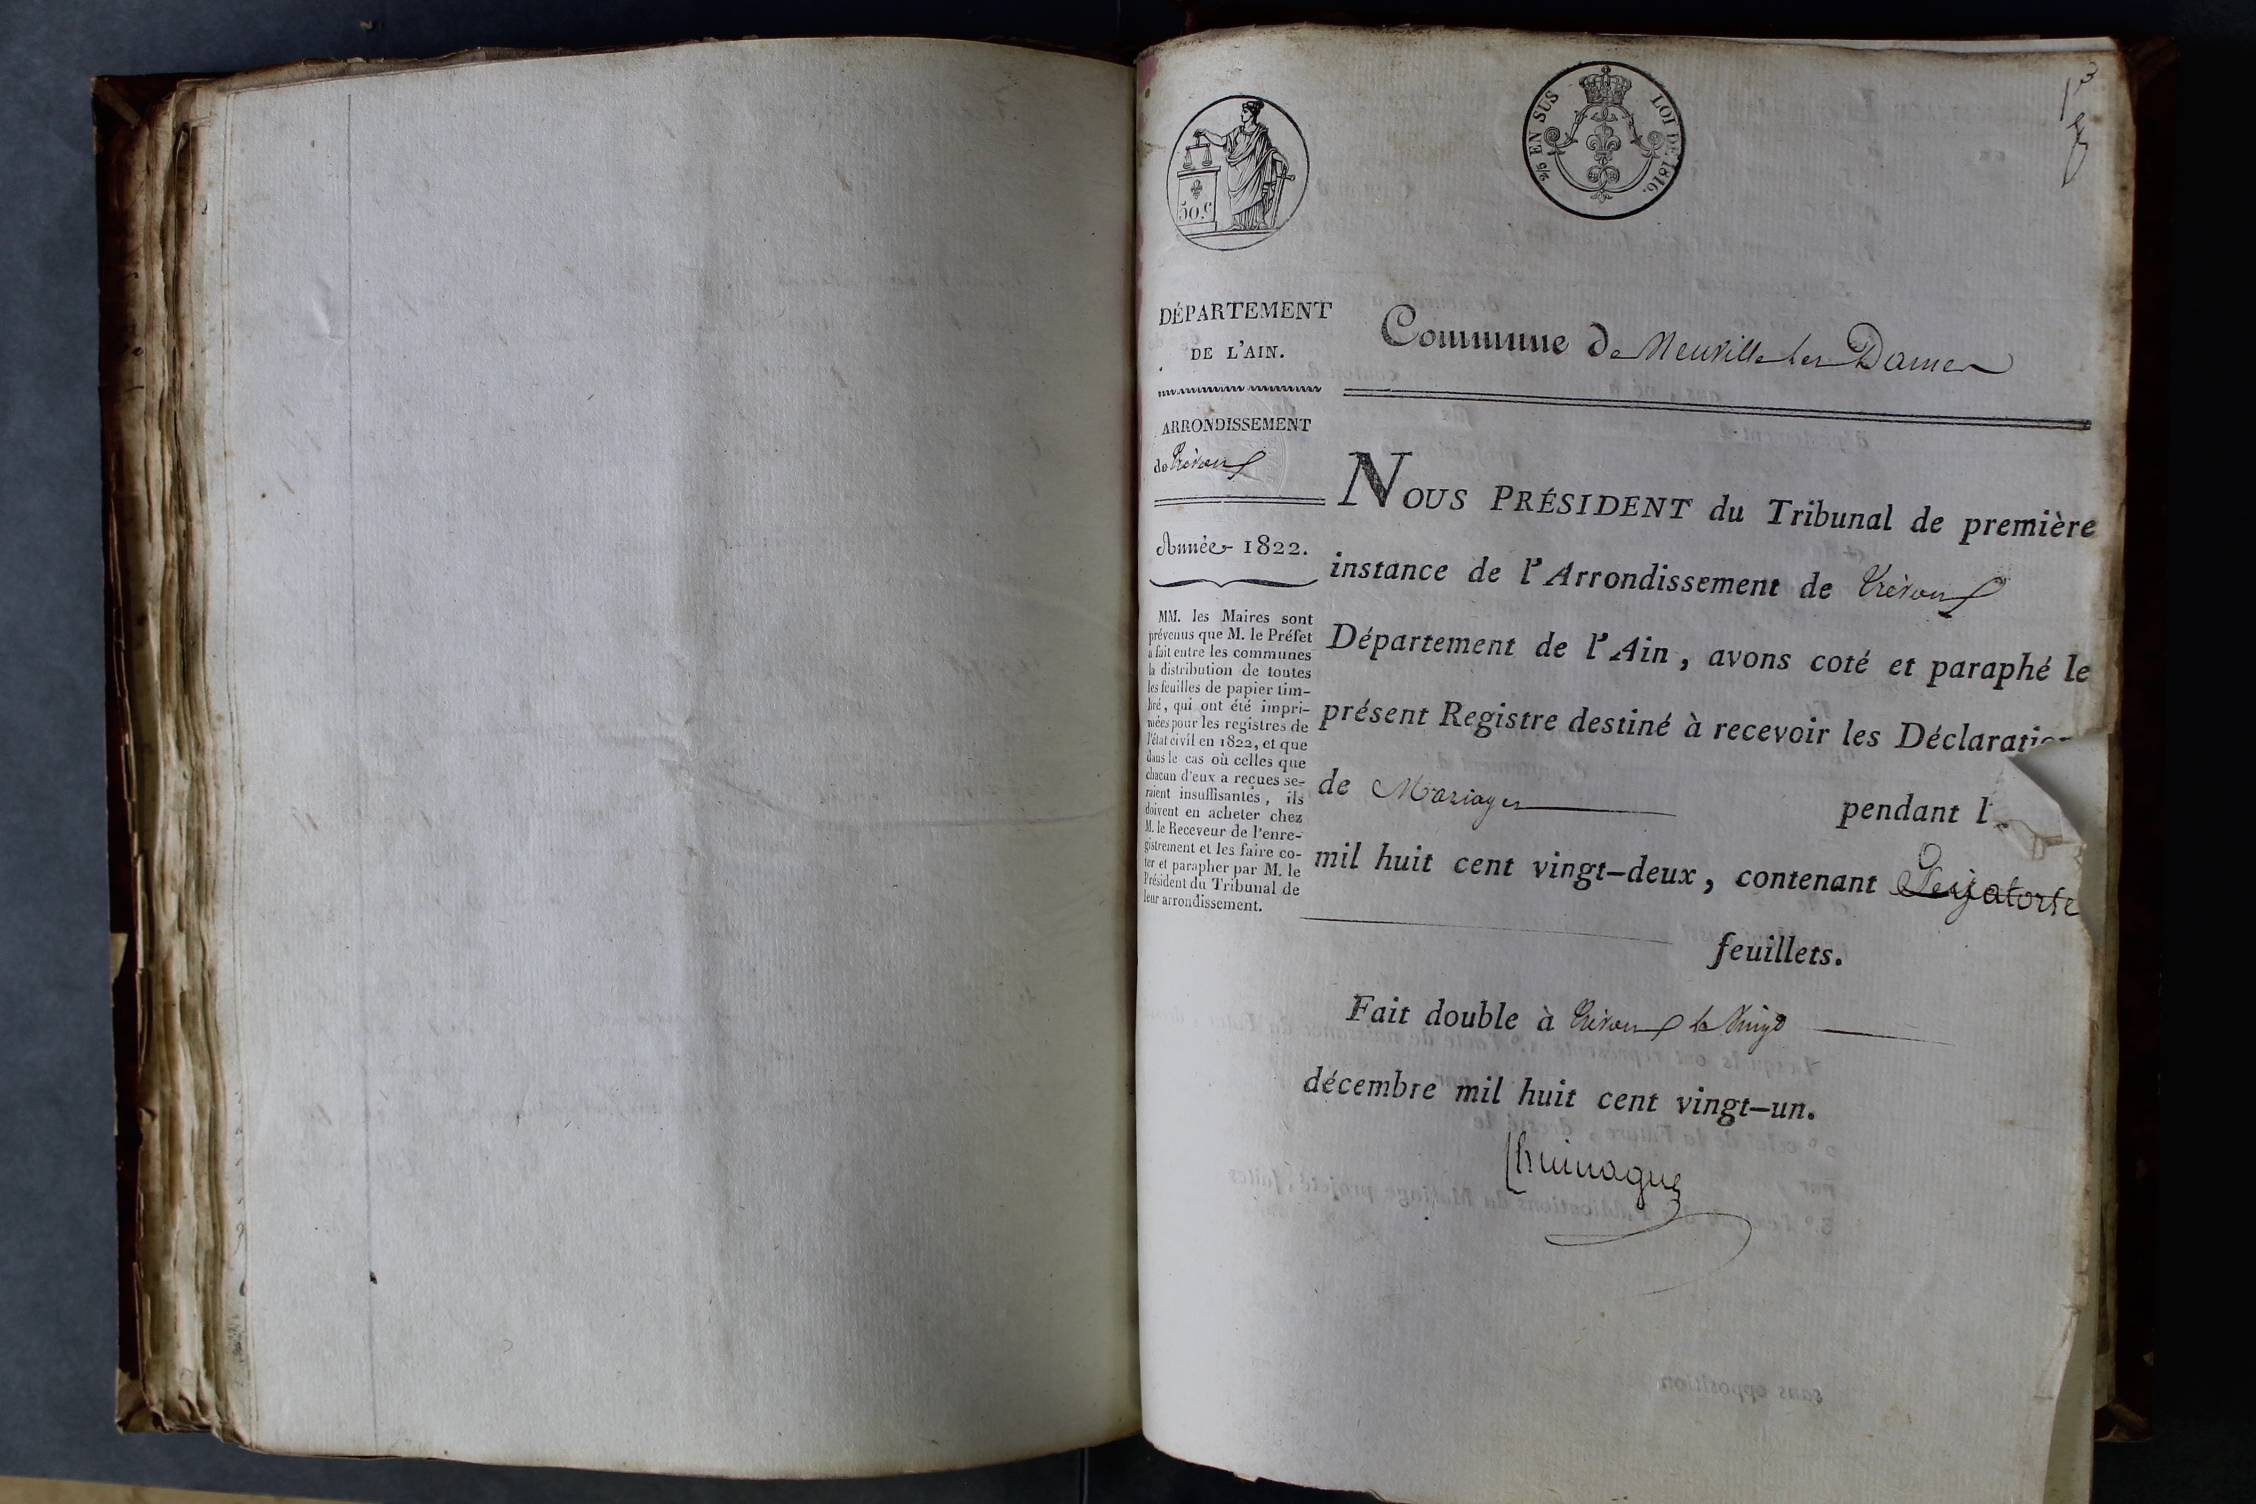 50.c
2/5 EN SUS LOI DE 1816.
DÉPARTEMENT
DE L'AIN.
ARRONDISSEMENT
de Trévoux
Année 1822.
MM. les Maires sont
prévenus que M. le Préfet
a fait entre les communes
la distribution de toutes
les feuilles de papier tim-
bré, qui ont été impri-
mées pour les registres de
l'état civil en 1822, et que
dans le cas où celles que
chacun d'eux a reçues se-
raient insuffisantes, ils
doivent en acheter chez
M. le Receveur de l'enre-
gistrement et les faire co-
ter et parapher par M. le
Président du Tribunal de
leur arrondissement.
Commune de Neuville les Dames
NOUS PRÉSIDENT du Tribunal de première
instance de l'Arrondissement de Trévoux
Département de l'Ain, avons coté et paraphé le
présent Registre destiné à recevoir les Déclaration
de Mariages pendant l
mil huit cent vingt-deux, contenant
feuillets.
Fait double à Trévoux le vingt
décembre mil huit cent vingt-un.